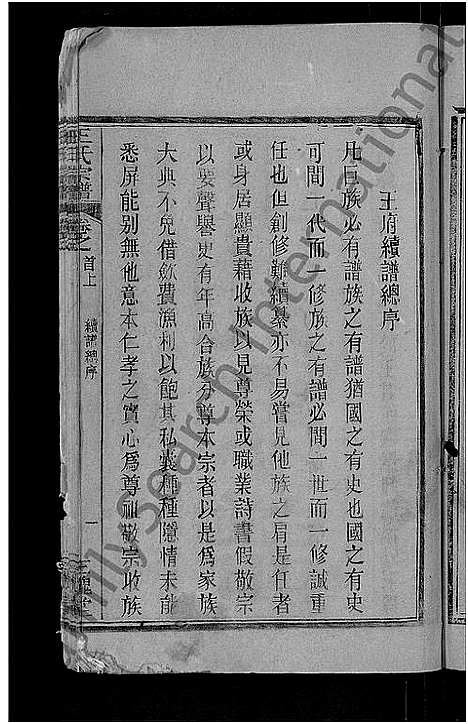 王府續譜總序
凡巨族必有譜族之有譜猶國之有史也國之有史
可間一代而一修族之有譜必間一世而一修誠重
任也但創修難續纂亦不易嘗見他族之肩是任者
或身居顯貴藉收族以見尊榮或職業詩書假敬宗
以要聲譽更有年高合族分尊本宗者以是爲家族
大典不免借斂費漁利以飽其私囊種種隱情未能
悉屏能别無他意本仁孝之實心爲尊祖敬宗收族
王氏宗譜 卷之首上 續譜總序 一 三槐堂
MySearch International